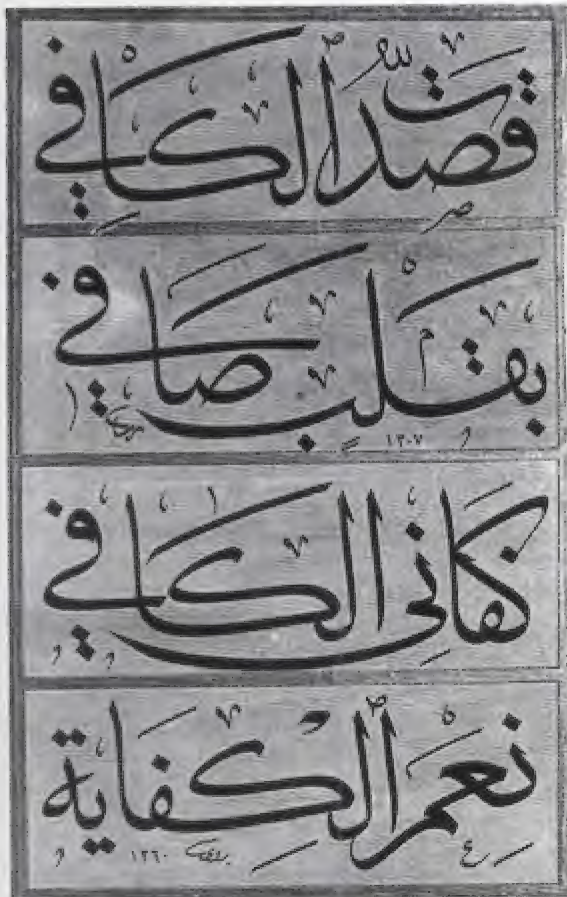 قصدت الكافي
بقلب صافي
١٣٠٧
كفاني الكافي
نعم الكفاية